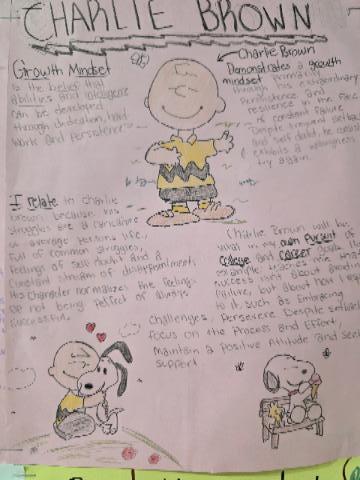 CHARLIE BROWN
Growth Mindset
is the belief that
abilities and intelligence
can be developed
through dedication, hard
work and persistence
Charlie Brown
Demonstrates a growth
mindset primarily
through his extraordinary
persistence and
resilience in the face
of constant failure.
Despite frequent setbacks
and self doubt, he
exhibits a willingness
try again.
I relate to Charlie
brown because his
struggles are a
a average persons life.
Full of common struggles,
feelings of self doubt and a
constant stream of disappointments
His character normalizes the feelings
of not being perfect or always
successful.
Charlie Brown will
in my own pursuit of
college and career goals
example teaches me that
success is about
failure, but about how
it, such as Embracing
challenges, Persevere Despite
focus on the Process and Effort,
maintain a positive Attitude and seek
support.